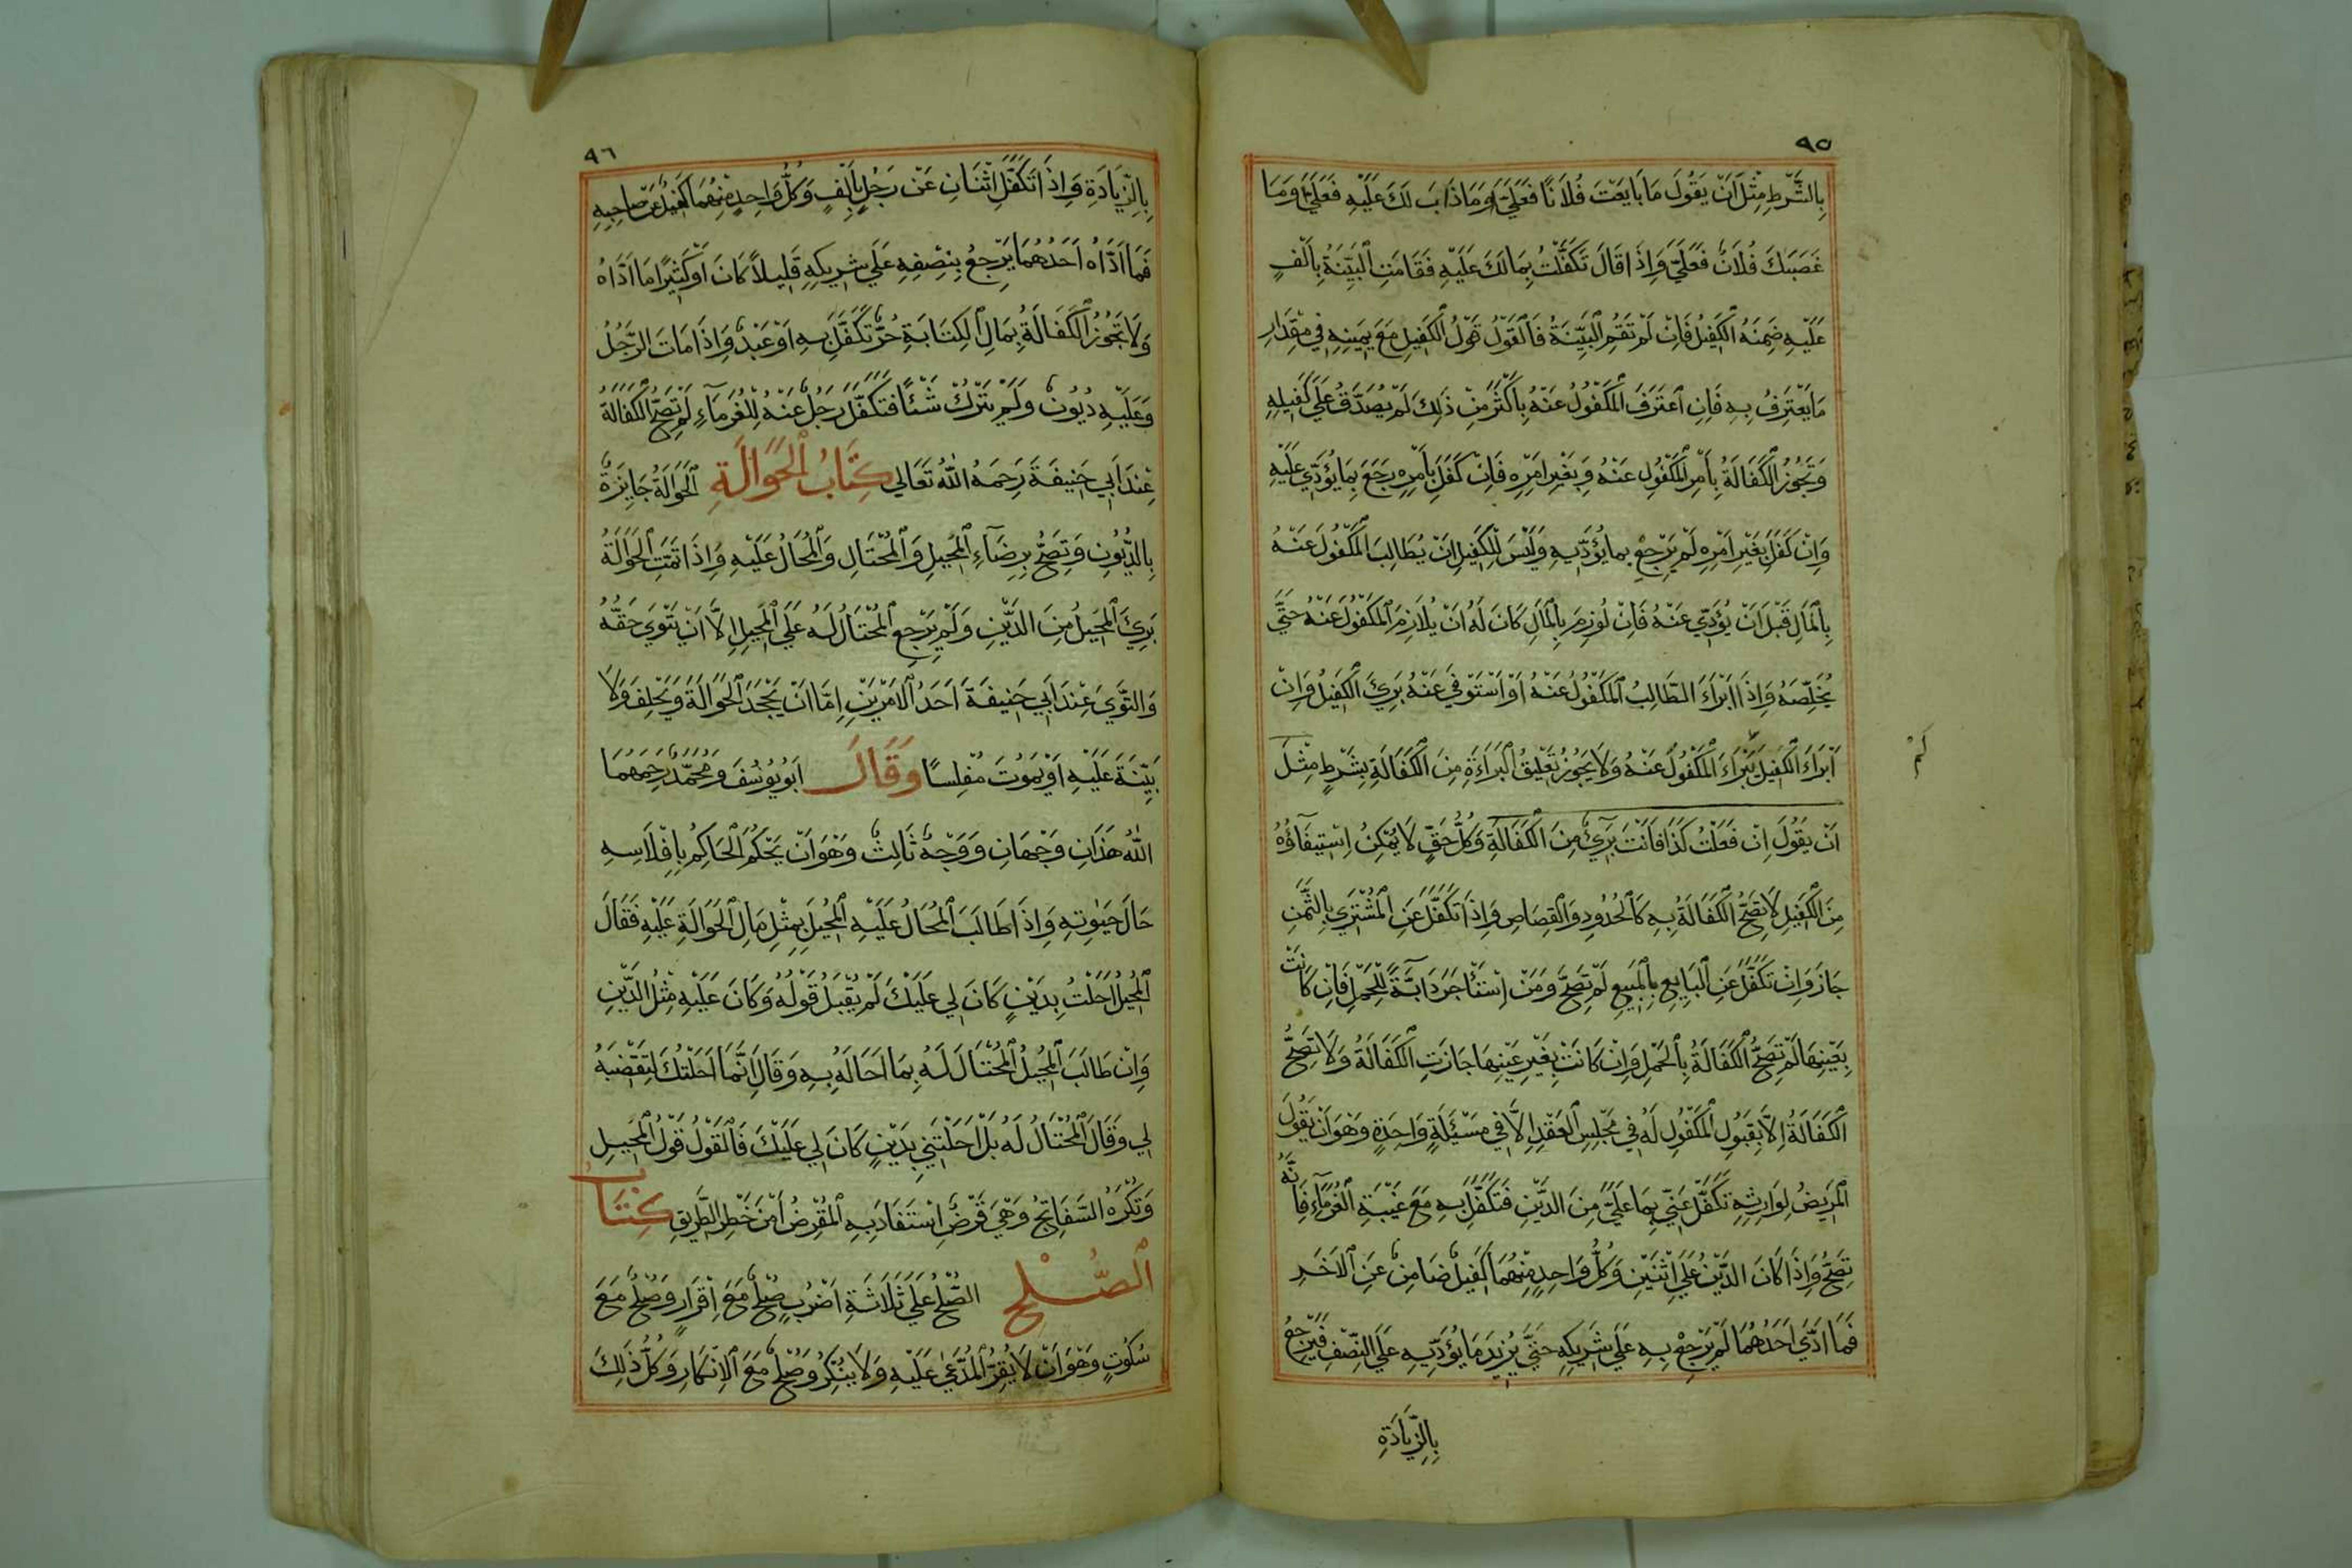 ٩٥
بِالشَّرْطِ مِثْلَ اَنْ يَقُولَ مَا بَايَعْتَ فُلَانًا فَعَلَيَّ وَمَا ذَابَ لَكَ عَلَيْهِ فَعَلَيَّ وَمَا
غَصَبَكَ فُلَانٌ فَعَلَيَّ وَاِذَا قَالَ تَكَفَّلْتُ بِمَالَكَ عَلَيْهِ فَقَامَتِ الْبَيِّنَةُ بِاَلْفٍ
عَلَيْهِ ضَمِنَهُ الْكَفِيلُ فَاِنْ لَمْ تَقُمِ الْبَيِّنَةُ فَالْقَوْلُ قَوْلُ الْكَفِيلِ مَعَ يَمِينِهِ فِي مِقْدَارِ
مَا يَعْتَرِفُ بِهِ فَاِنِ اعْتَرَفَ الْمَكْفُولُ عَنْهُ بِاَكْثَرَ مِنْ ذَلِكَ لَمْ يُصَدَّقْ عَلَي كَفِيلِهِ
وَتَجُوزُ الْكَفَالَةُ بِاَمْرِ الْمَكْفُولِ عَنْهُ وَبِغَيْرِ اَمْرِهِ فَاِنْ كَفَلَ بِاَمْرِهِ رَجَعَ بِمَا يُؤَدِّي عَلَيْهِ
وَاِنْ كَفَلَ بِغَيْرِ اَمْرِهِ لَمْ يَرْجِعْ بِمَا يُؤَدِّيهِ وَلَيْسَ لِلْكَفِيلِ اَنْ يُطَالِبَ الْمَكْفُولَ عَنْهُ
بِالْمَالِ قَبْلَ اَنْ يُؤَدِّيَ عَنْهُ فَاِنْ لُوزِمَ بِالْمَالِ كَانَ لَهُ اَنْ يُلَازِمَ الْمَكْفُولَ عَنْهُ حَتَّي
يُخَلِّصَهُ وَاِذَا اَبْرَاَءَ الطَّالِبُ الْمَكْفُولَ عَنْهُ اَوْ اَسْتَوْفَي عَنْهُ بَرِئَ الْكَفِيلُ وَاِنْ
اَبْرَاَءَ الْكَفِيلَ يَبْرَاَءَ الْمَكْفُولُ عَنْهُ وَلَا يَجُوزُ تَعْلِيقُ الْبَرَاءَةِ مِنَ الْكَفَالَةِ بِشَرْطٍ مِثْلَ
لَمْ
اَنْ يَقُولَ اِنْ فَعَلْتُ كَذَا فَاَنْتَ بَرِيءٌ مِنَ الْكَفَالَةِ وَكُلُّ حَقٍّ لَا يُمْكِنُ اِسْتِيفَاؤُهُ
مِنَ الْكَفِيلِ لَا تَصِحُّ الْكَفَالَةُ بِهِ كَالْحُدُودِ وَالْقِصَاصِ وَاِذَا تَكَفَّلَ عَنِ الْمُشْتَرِي بِالثَّمَنِ
جَازَ وَاِنْ تَكَفَّلَ عَنِ الْبَايِعِ بِالْمَبِيعِ لَمْ تَصِحَّ وَمَنْ اِسْتَاْجَرَ دَابَّةً لِلْحَمْلِ فَاِنْ كَانَتْ
بِعَيْنِهَا لَمْ تَصِحَّ الْكَفَالَةُ بِالْحَمْلِ وَاِنْ كَانَتْ بِغَيْرِ عَيْنِهَا جَازَتِ الْكَفَالَةُ وَلَا تَصِحُّ
الْكَفَالَةُ اِلَّا بِقَبُولِ الْمَكْفُولِ لَهُ فِي مَجْلِسِ الْعَقْدِ اِلَّا فِي مَسْئَلَةٍ وَاحِدَةٍ وَهُوَ اَنْ يَقُولَ
الْمَرِيضُ لِوَارِثِهِ تَكَفَّلْ عَنِّي بِمَا عَلَيَّ مِنَ الدَّيْنِ فَتَكَفَّلَ بِهِ مَعَ غَيْبَةِ الْغُرَمَاءِ فَاِنَّهُ
تَصِحُّ وَاِذَا كَانَ الدَّيْنُ عَلَي اثْنَيْنِ وَكُلُّ وَاحِدٍ مِنْهُمَا كَفِيلٌ ضَامِنٌ عَنِ الْاَخَرِ
فَمَا اَدَّي اَحَدُهُمَا لَمْ يَرْجِعْ بِهِ عَلَي شَرِيكِهِ حَتَّي يَزِيدَ مَا يُؤَدِّيهِ عَلَي النِّصْفِ فَيَرْجِعُ
بِالزِّيَادَةِ
٩٦
بِالزِّيَادَةِ وَاِذَا تَكَفَّلَ اثْنَانِ عَنْ رَجُلٍ بِاَلْفٍ وَكُلُّ وَاحِدٍ مِنْهُمَا كَفِيلٌ عَنْ صَاحِبِهِ
فَمَا اَدَّاهُ اَحَدُهُمَا يَرْجِعُ بِنِصْفِهِ عَلَي شَرِيكِهِ قَلِيلاً كَانَ اَوْ كَثِيرًا مَا اَدَّاهُ
وَلَا تَجُوزُ الْكَفَالَةُ بِمَالِ الْكِتَابَةِ حُرٌّ تَكَفَّلَ بِهِ اَوْ عَبْدٌ وَاِذَا مَاتَ الرَّجُلُ
وَعَلَيْهِ دُيُونٌ وَلَمْ يَتْرُكْ شَيْئًا فَتَكَفَّلَ رَجُلٌ عَنْهُ لِلْغُرَمَاءِ لَمْ تَصِحَّ الْكَفَالَةُ
عِنْدَ اَبِي حَنِيفَةَ رَحِمَهُ اللّٰهُ تَعَالَي كِتَابُ الْحَوَالَةِ اَلْحَوَالَةُ جَايِزَةٌ
بِالدُّيُونِ وَتَصِحُّ بِرِضَاءِ الْمُحِيلِ وَالْمُحْتَالِ وَالْمُحَالُ عَلَيْهِ وَاِذَا تَمَّتِ الْحَوَالَةُ
بَرِئَ الْمُحِيلُ مِنَ الدَّيْنِ وَلَمْ يَرْجِعِ الْمُحْتَالُ لَهُ عَلَي الْمُحِيلِ اِلَّا اَنْ يَتْوَي حَقُّهُ
وَالتَّوَي عِنْدَ اَبِي حَنِيفَةَ اَحَدُ الْاَمْرَيْنِ اِمَّا اَنْ يَجْحَدَ الْحَوَالَةَ وَيَحْلِفَ وَلَا
بَيِّنَةَ عَلَيْهِ اَوْ يَمُوتَ مُفْلِسًا وَقَالَ اَبُو يُوسُفَ وَمُحَمَّدٌ رَحِمَهُمَا
اللّٰهُ هَذَانِ وَجْهَانِ وَوَجْهٌ ثَالِثٌ وَهُوَ اَنْ يَحْكُمَ الْحَاكِمُ بِاِفْلَاسِهِ
حَالَ حَيٰوتِهِ وَاِذَا طَالَبَ الْمُحَالُ عَلَيْهِ الْمُحِيلَ بِمِثْلِ مَالِ الْحَوَالَةِ عَلَيْهِ فَقَالَ
الْمُحِيلُ اَحَلْتُ بِدَيْنٍ كَانَ لِي عَلَيْكَ لَمْ يُقْبَلْ قَوْلُهُ وَكَانَ عَلَيْهِ مِثْلُ الدَّيْنِ
وَاِنْ طَالَبَ الْمُحِيلُ الْمُحْتَالَ لَهُ بِمَا اَحَالَهُ بِهِ وَقَالَ اِنَّمَا اَحَلْتُكَ لِتَقْبِضَهُ
لِي وَقَالَ الْمُحْتَالُ لَهُ بَلْ اَحَلْتَنِي بِدَيْنٍ كَانَ لِي عَلَيْكَ فَالْقَوْلُ قَوْلُ الْمُحِيلِ
وَتُكْرَهُ السَّفَاتِجُ وَهِيَ قَرْضٌ اسْتَفَادَ بِهِ الْمُقْرِضُ اَمْنَ خَطَرِ الطَّرِيقِ كِتَابُ
الصُّلْحِ الصُّلْحُ عَلَي ثَلَاثَةِ اَضْرُبٍ صُلْحٌ مَعَ اِقْرَارٍ وَصُلْحٌ مَعَ
سُكُوتٍ وَهُوَ اَنْ لَا يُقِرَّ الْمُدَّعَي عَلَيْهِ وَلَا يُنْكِرُ وَصُلْحٌ مَعَ الْاِنْكَارِ وَكُلُّ ذَلِكَ